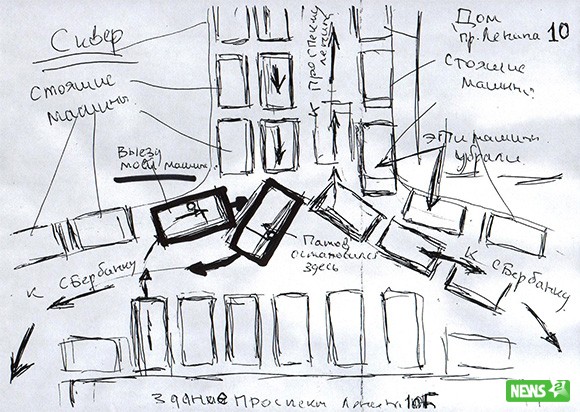 Сквер
Стоящие
машины
Выезд
моей машин
к проспекту
Ленина
Дом
пр. Ленина 10
Стоящие
машины
эти машины
убрали
Патов
остановился
здесь
к Сбербанку
к
Сбербанку
Здание проспект Ленина 10Б
NEWS